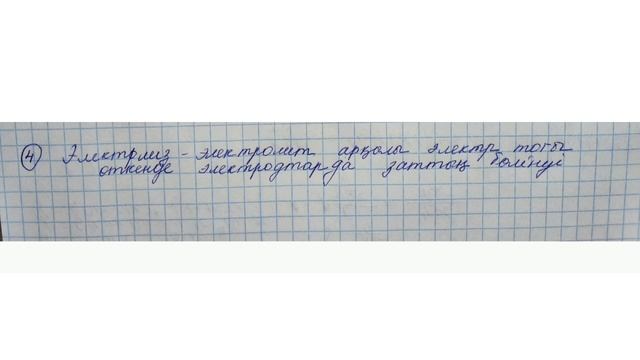 ④ Электрлиз - электролит арқылы электр тогы
өткенде электродтарда заттың бөлінуі